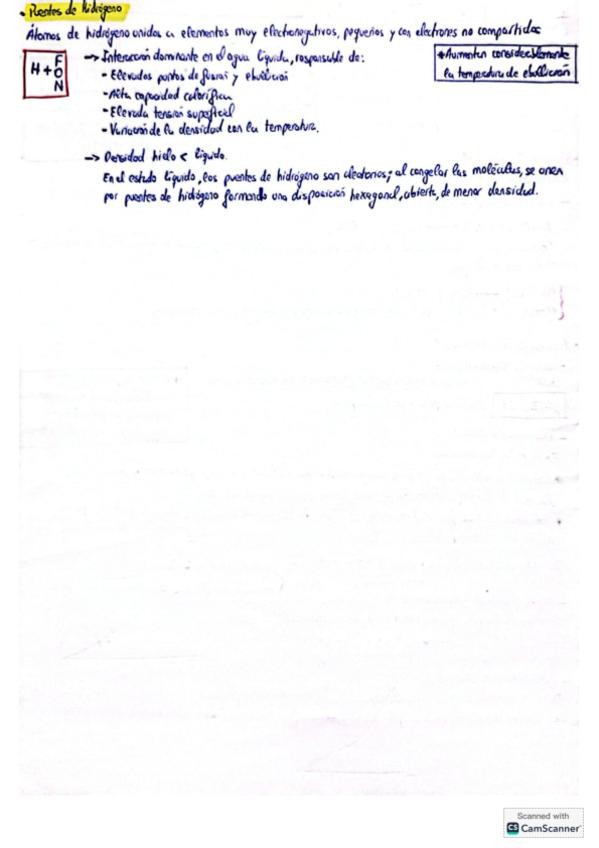 • Puentes de hidrógeno
Átomos de hidrógeno unidos a elementos muy electronegativos, pequeños y con electrones no compartidos
H + F O N
→ Interacción dominante en el agua líquida, responsable de:
- Elevados puntos de fusión y ebullición
- Alta capacidad calorífica
- Elevada tensión superficial
- Variación de la densidad con la temperatura.
* Aumentan considerablemente
la temperatura de ebullición
→ Densidad hielo < líquido.
En el estado líquido, los puentes de hidrógeno son aleatorios; al congelar las moléculas, se unen
por puentes de hidrógeno formando una disposición hexagonal, abierta, de menor densidad.
Scanned with
CS CamScanner